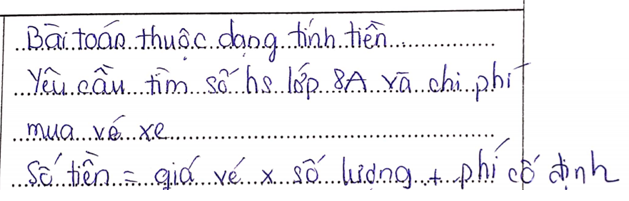 Bài toán thuộc dạng tính tiền
Yêu cầu tìm số hs lớp 8A và chi phí
mua vé xe
Số tiền = giá vé x số lượng + phí cố định